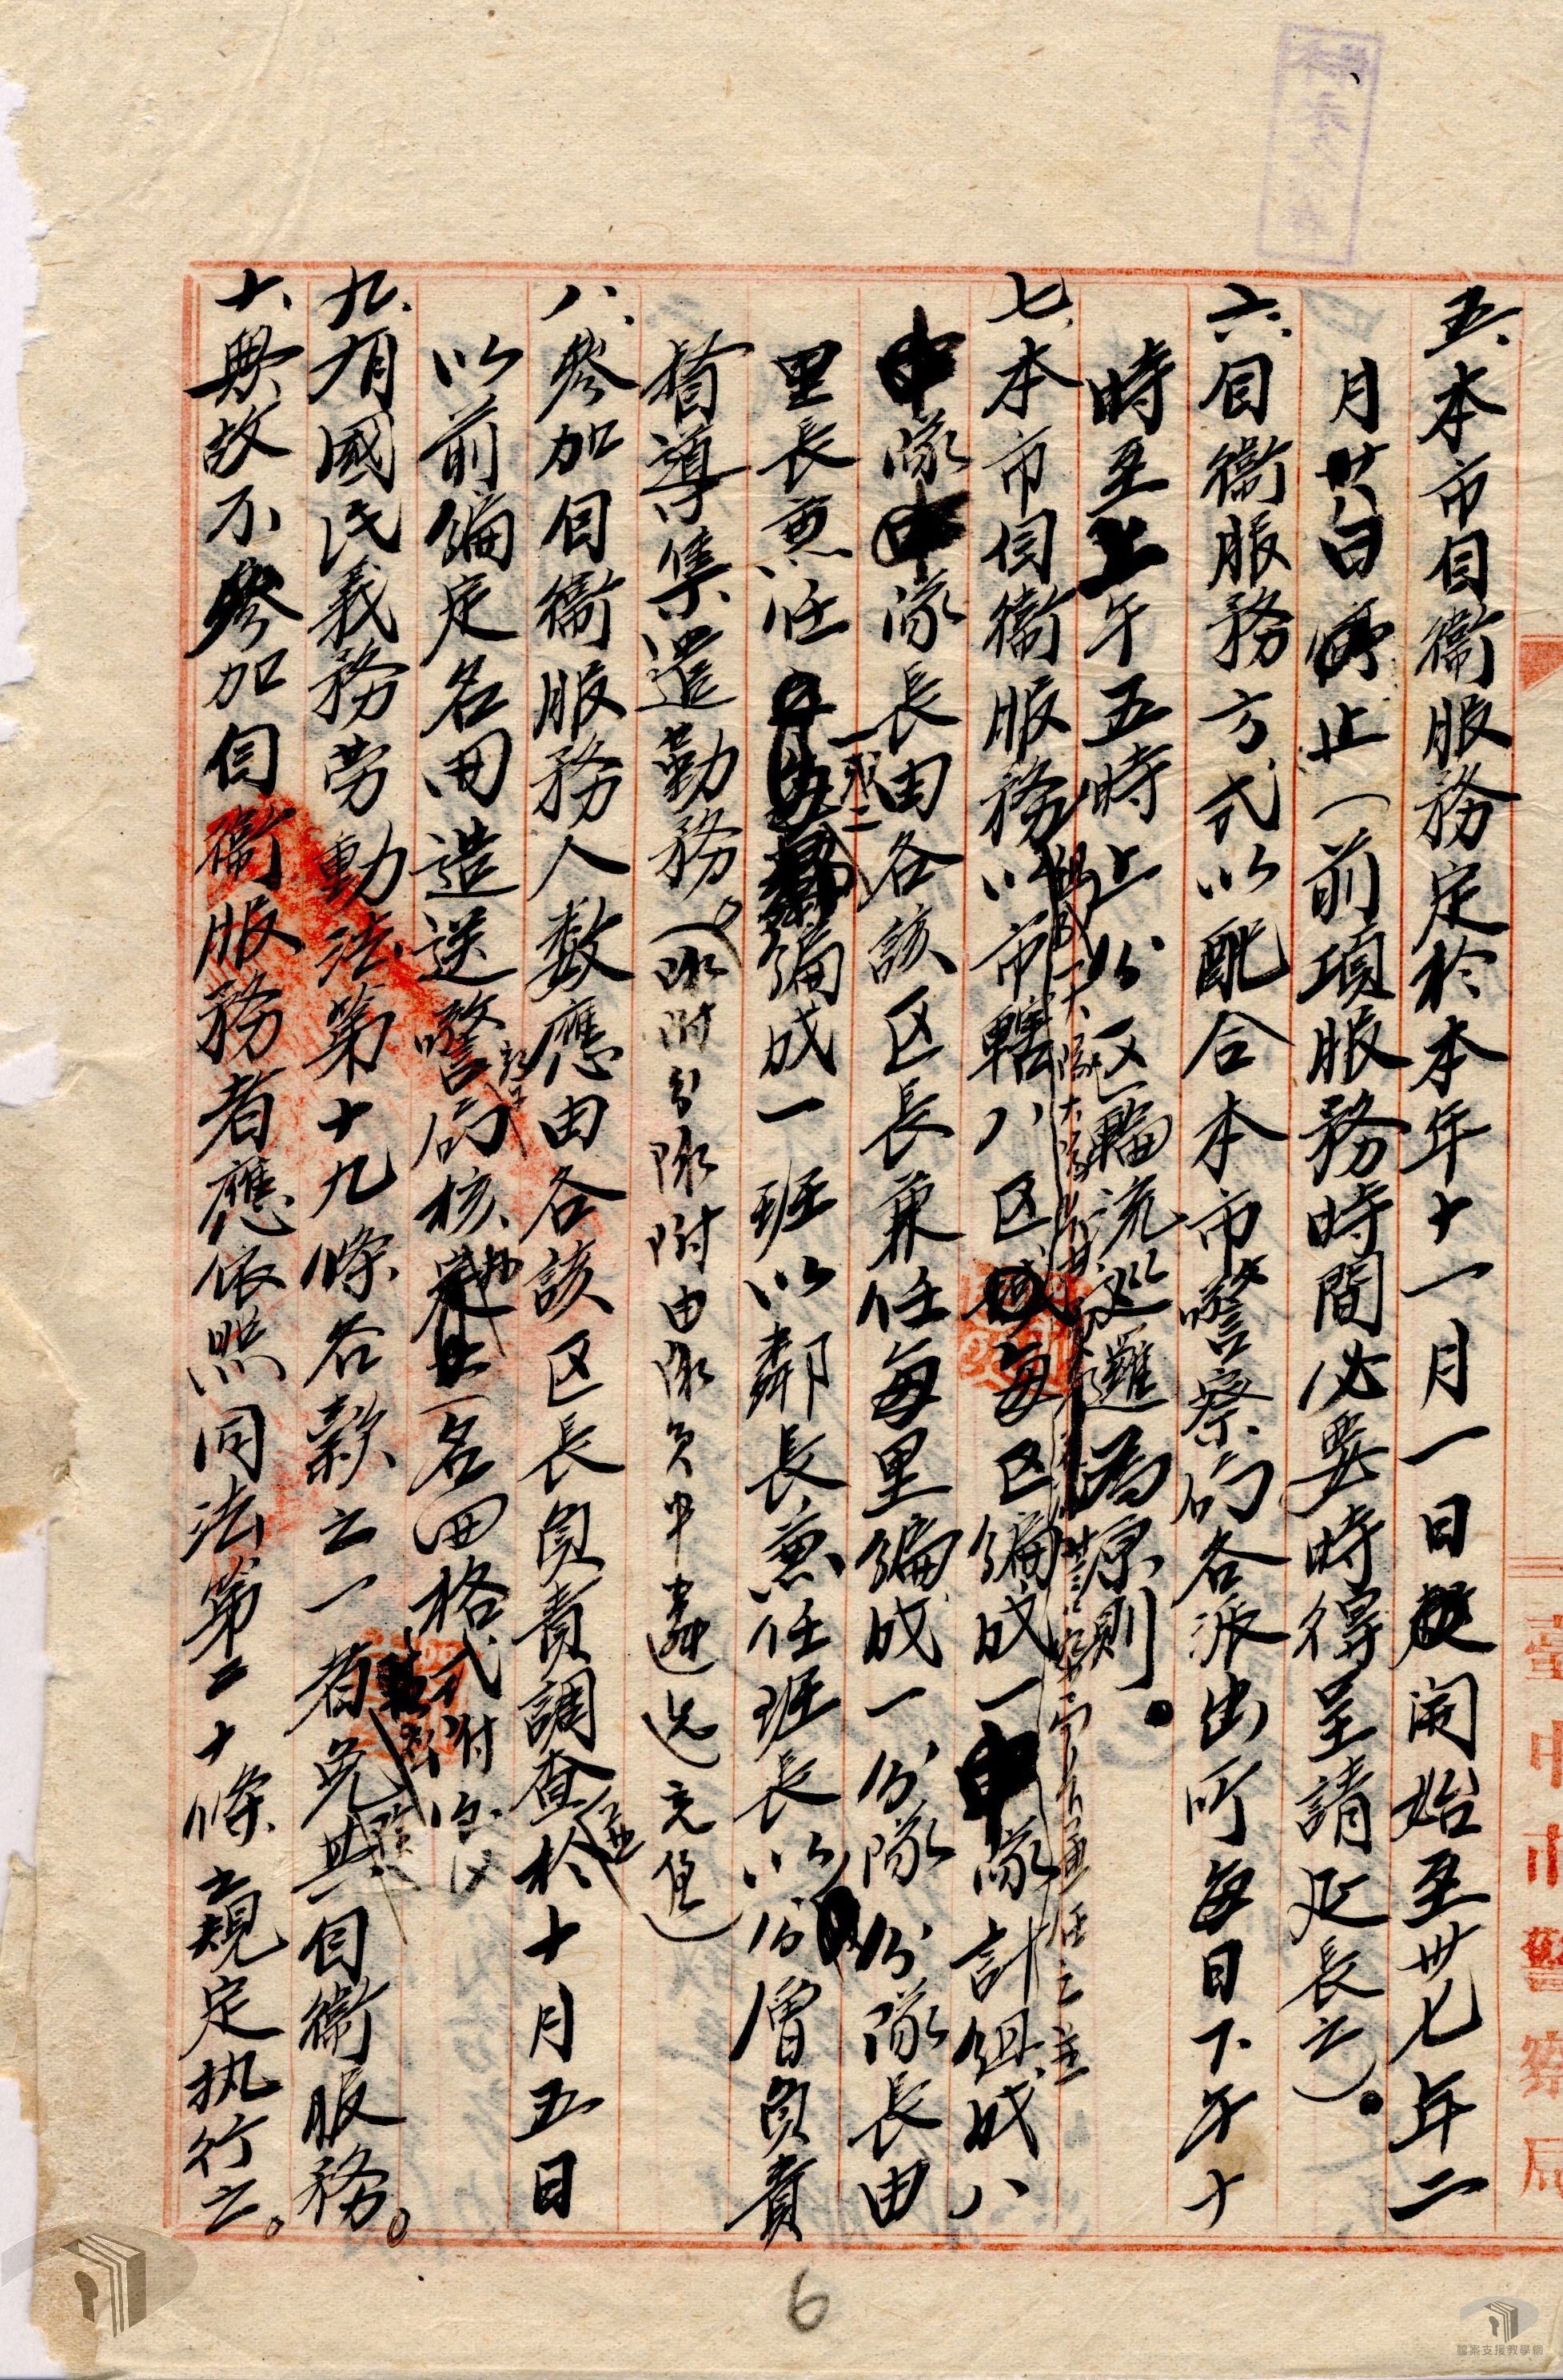 五、本市自衛服務定於本年十一月一日起開始至卅七年二
月廿八日止(前項服務時間必要時得呈請延長之)。
六、自衛服務方式以配合本市警察局各派出所每日下午十
時至上午五時止分区輪流巡邏為原則。
七、本市自衛服務以市轄八区每区編成一中隊計組成八
組成一大隊大隊長
市長兼任之並
中隊中隊長由各該区長兼任每里編成一分隊分隊長由
里長兼任編成一班以鄰長兼任班長以分層負責
指導集遣勤務。(隊附分隊附由隊員中遴选充任)
八、參加自衛服務人數應由各該区長負責調查並於十月五日
以前編定名冊造送警局核(名冊格式附後)
九、有國民義務劳動法第十九條各款之一者免其自衛服務。
十、無故不參加自衛服務者應依照同法第二十條之規定执行之。
臺中市警察局
6
檔案支援教學網